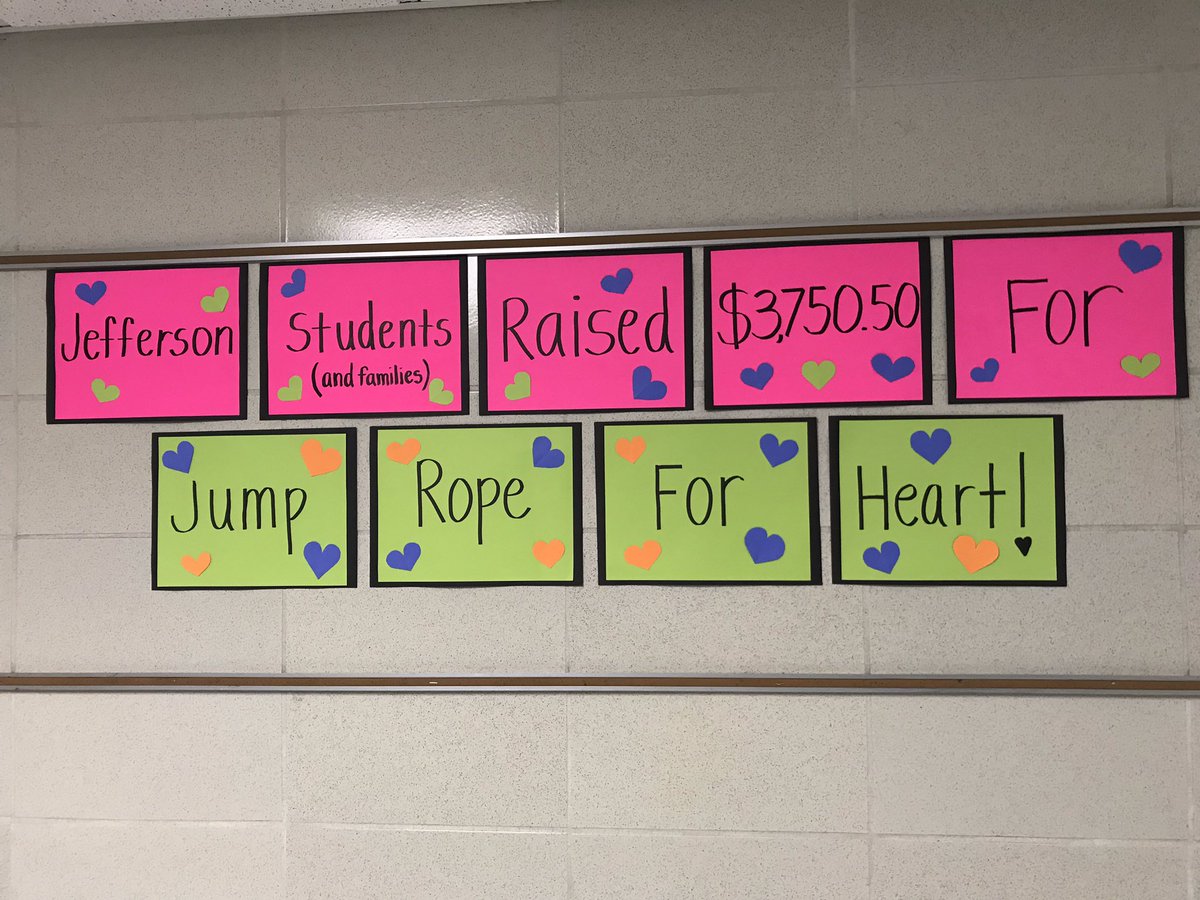 Jefferson Students Raised $3,750.50 For
(and families)
Jump Rope For Heart!